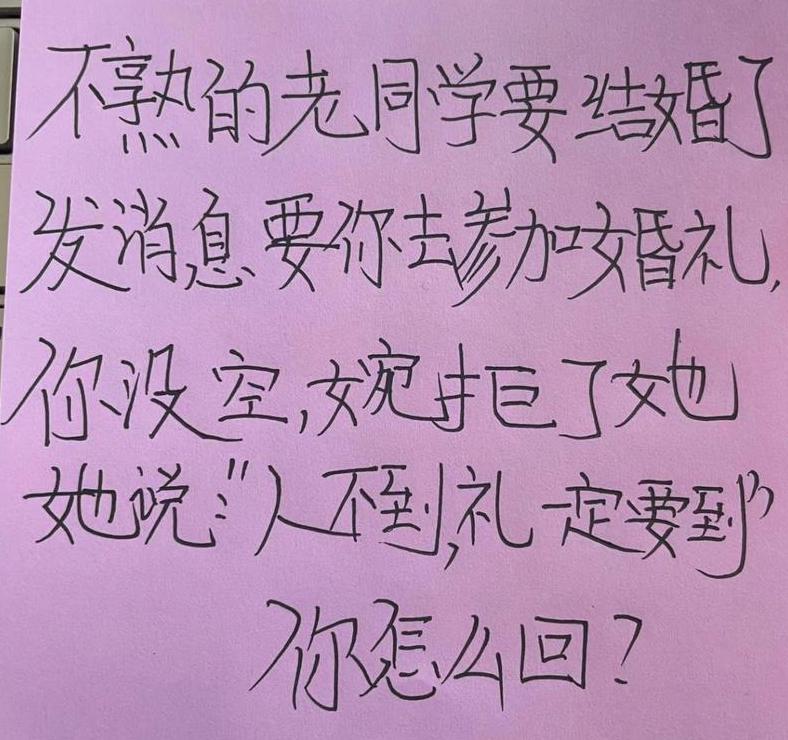 不熟的老同学要结婚了
发消息要你去参加婚礼,
你没空,婉拒了她
她说:"人不到,礼一定要到"
你怎么回?